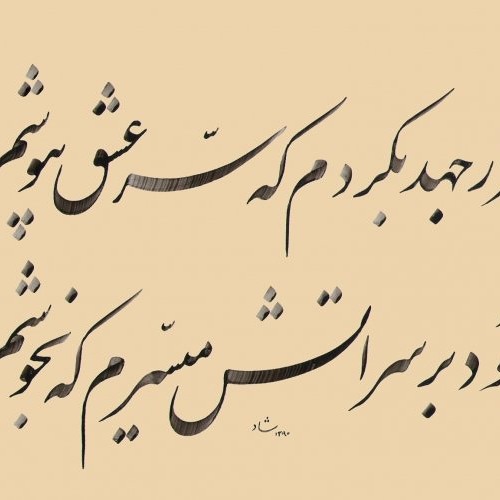 ر جهد بکردم که سرّ عشق بپوشم
ود بر سر اتش میسّرم که نجوشم
شاد ۱۳۹۰